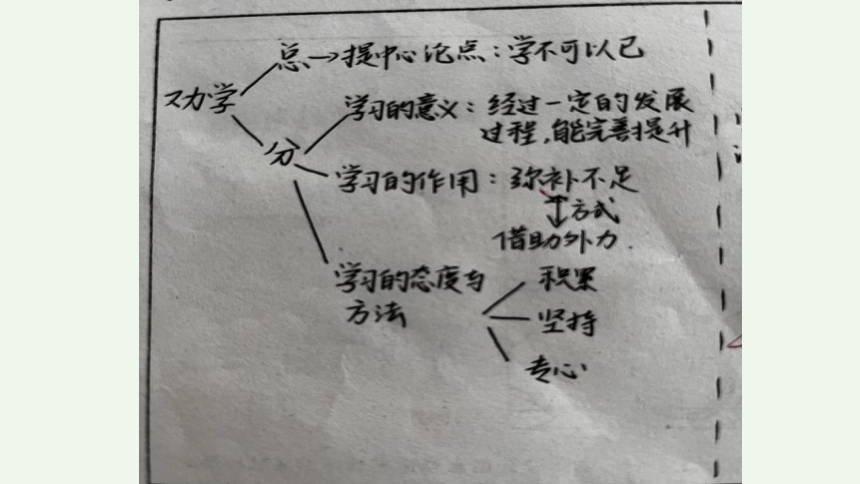 总→提中心论点：学不可以已
劝学
学习的意义：经过一定的发展
过程，能完善提升
分
学习的作用：弥补不足
方式
借助外力.
学习的态度与
方法
积累
坚持
专心